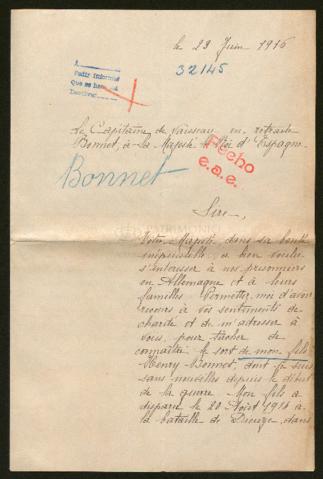 le 23 Juin 1916
32145
A
Pedir informes
Que se
Le Capitaine de Vaisseau en retraite
Bonnet, à Sa Majesté le Roi d'Espagne.
Hecho
e.a.e.
Bonnet
Sire,
Votre Majesté, dans sa bonté
inépuisable, a bien voulu
s'intéresser à nos prisonniers
en Allemagne et à leurs
familles. Permettez-moi d'avoir
recours à vos sentiments de
charité et de m'adresser à
vous, pour tâcher de
connaître le sort de mon fils
Henry Bonnet, dont je suis
sans nouvelles depuis le début
de la guerre. Mon fils a
disparu le 20 Août 1914 à
la bataille de Dieuze, dans